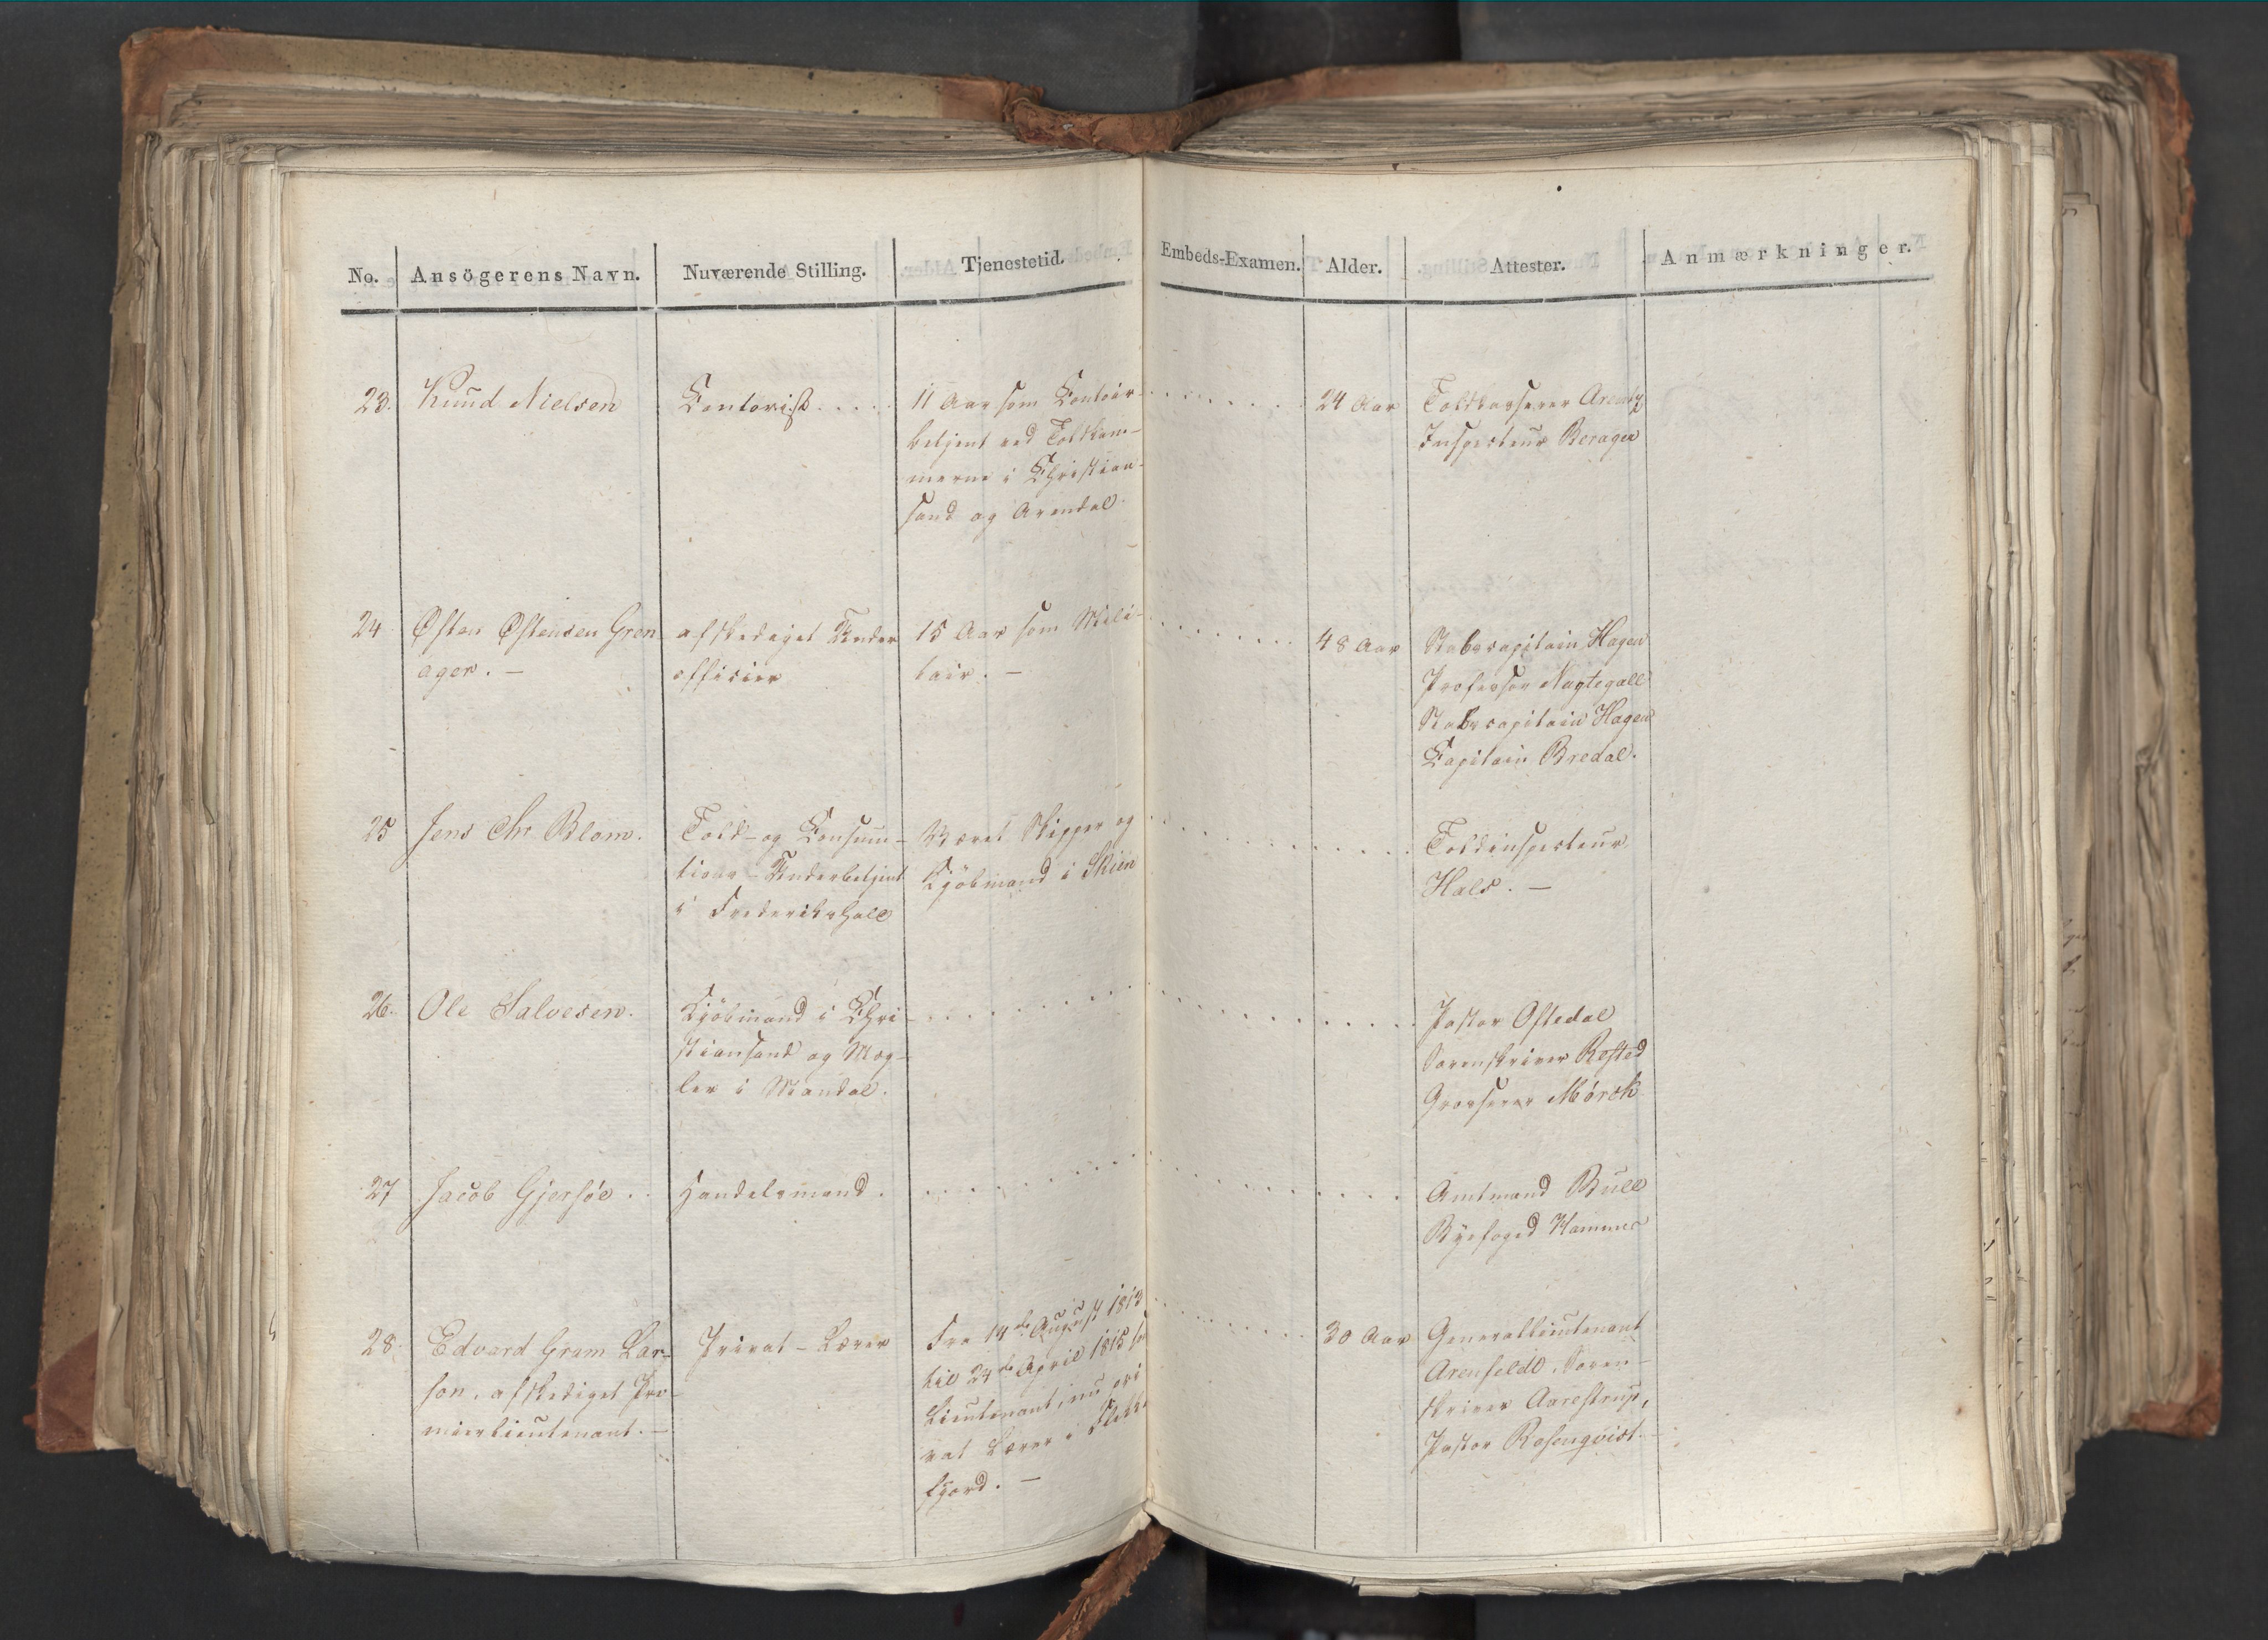 No. Ansögerens Navn. Nuværende Stilling. Tjenestetid. Embeds-Examen. Alder. Attester. Anmærkninger.
23. Knud Nielsen
Contorist.....
11 Aar som Contoir-
betjent ved Toldkam-
merne i Christian-
sand og Arendal.
24 Aar
Toldkasserer Arentz
Inspecteur Berager
24. Østen Østensen Gron
ager. —
afskediget Under
officier
15 Aar som Mili-
tair. —
48 Aar
Stabscapitain Hagen
Professor Nagtegall
Stabscapitain Hagen
Capitain Bredal.
25 Jens Chr Blom.
Told- og Consum-
tions-Underbetjent
i Frederikshall
Været Skipper og
Kjöbmand i Skien
Toldinspecteur
Hals. —
26. Ole Salvesen.
Kjöbmand i Chri-
stiansand og Mæg-
ler i Mandal.
Pastor Oftedal
Sorenskriver Rosted
Grosserer Mörch
27 Jacob Gjersöe..
Handelsmand.
Amtmand Bull
Byefoged Hammer
28. Edvard Gram Lar-
son, afskediget Pre-
mierlieutenant. —
Privat-Lærer
Fra 14de August 1813
til 24de April 1815 so
Lieutenant, nu pri
vat Lærer i Flekke
fjord. —
30 Aar
Generallieutenant
Arenfeldt, Soren-
skriver Aarestrup,
Pastor Rosenqvist. —